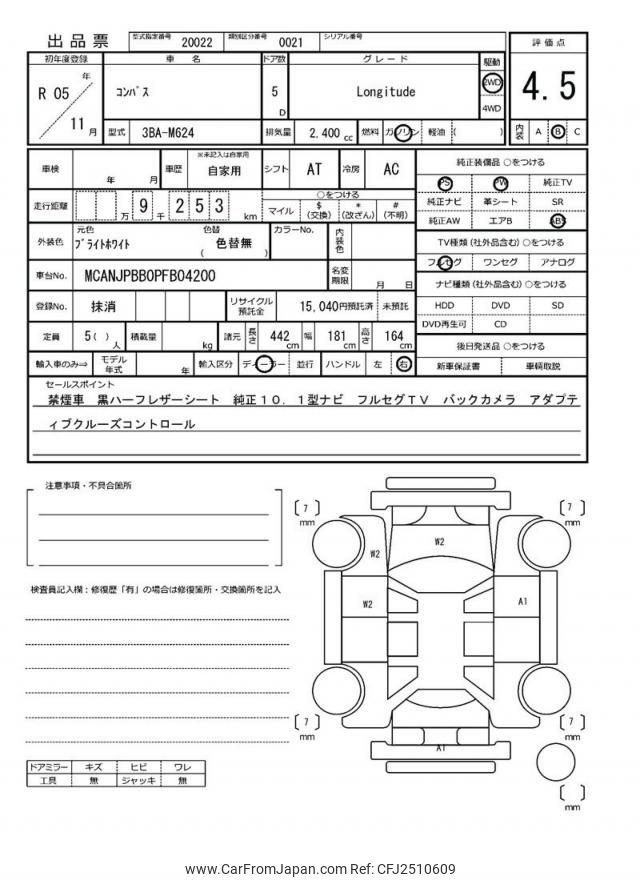 出品票
型式指定番号 20022 類別区分番号 0021 シリアル番号
評価点
4.5
内装 A B C
初年度登録 車名 ドア数 グレード 駆動
R 05 年 11 月
コンパス
5 D
Longitude
2WD
4WD
型式 3BA-M624 排気量 2.400 cc 燃料 ガソリン 軽油 ( )
車検 年 月 車歴 ※未記入は自家用 自家用 シフト AT 冷房 AC
走行距離 万 9 千 2 5 3 km
○をつける
マイル $ (交換) * (改ざん) # (不明)
外装色 元色 ブライトホワイト 色替 色替無 ( ) カラーNo. 内装色
車台No. MCANJPBB0PFB04200 名変期限 月 日
登録No. 抹消 リサイクル預託金 15,040円預託済 未預託
定員 5( ) 人 積載量 kg 諸元 長さ 442 cm 幅 181 cm 高さ 164 cm
輸入車のみ⇒ モデル年式 年 輸入区分 ディーラー 並行 ハンドル 左 右
純正装備品 ○をつける
PS PW 純正TV
純正ナビ 革シート SR
純正AW エアB ABS
TV種類 (社外品含む) ○をつける
フルセグ ワンセグ アナログ
ナビ種類 (社外品含む) ○をつける
HDD DVD SD
DVD再生可 CD
後日発送品 ○をつける
新車保証書 車輌取説
セールスポイント
禁煙車 黒ハーフレザーシート 純正10.1型ナビ フルセグTV バックカメラ アダプテ
ィブクルーズコントロール
注意事項・不具合箇所
検査員記入欄:修復歴「有」の場合は修復箇所・交換箇所を記入
ドアミラー キズ ヒビ ワレ
工具 無 ジャッキ 無
[ 7 ] mm
[ 7 ] mm
W2
W2
W2
A1
[ 7 ] mm
[ 7 ] mm
A1
[ ] mm
www.CarFromJapan.com Ref: CFJ2510609